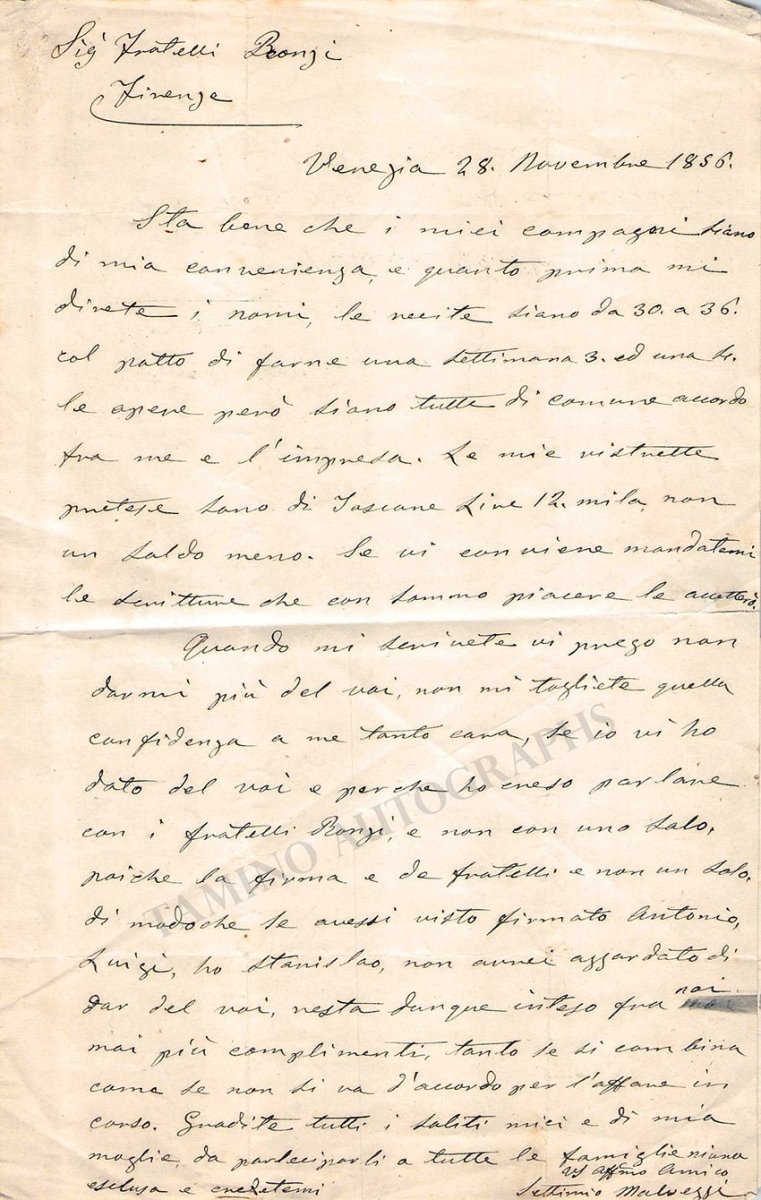 Sig Fratelli Ronzi
Firenze
Venezia 28. Novembre 1856.
Sta bene che i miei compagni siano
di mia convenienza, e quanto prima mi
direte i nomi, le recite siano da 30. a 36.
col patto di farne una settimana 3. ed una 4.
le opere però siano tutte di comune accordo
fra me e l'impresa. Le mie ristrette
pretese sono di Toscane Lire 12. mila, non
un soldo meno. Se vi conviene mandatemi
le scritture che con sommo piacere le accetterò.
Quando mi scrivete vi prego non
darmi più del voi, non mi togliete quella
confidenza a me tanto cara, se io vi ho
dato del voi e perche ho creso parlare
con i fratelli Ronzi, e non con uno solo,
poiche la firma e de fratelli e non un solo,
di modoche se avessi visto firmato Antonio,
Luigi, ho Stanislao, non avrei azzardato di
dar del voi, resta dunque inteso fra noi
mai più complimenti, tanto se si combina
come se non si va d'accordo per l'affare in
corso. Gradite tutti i saluti miei e di mia
moglie, da parteciparli a tutte le famiglie niuna
esclusa e credetemi
Vs Affmo Amico
Settimio Malvezzi
TAMINO AUTOGRAPHS